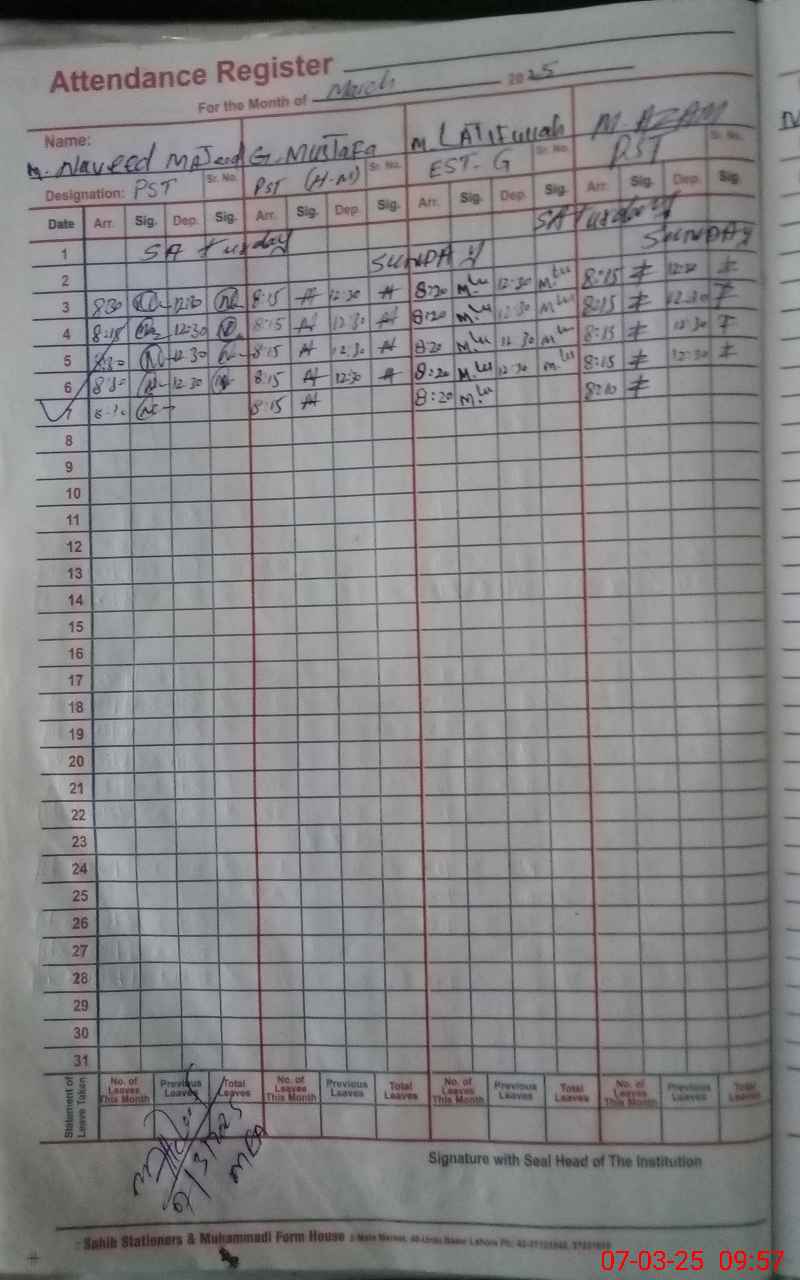 Attendance Register
For the Month of March 2025
Name: M. Naveed Majeed G. Mustafa M LATIFullah M. AZAM
Designation: PST Sr. No. PST (H-M) Sr. No. EST-G Sr. No. PST Sr. No.
Date Arr. Sig. Dep. Sig. Arr. Sig. Dep. Sig. Arr. Sig. Dep. Sig. Arr. Sig. Dep. Sig
1 SAturday SATurday
2 SUNDAY SUNDAY
3 8:30 12:30 8:15 12:30 8:20 12:30 8:15 12:30
4 8:15 12:30 8:15 12:30 8:20 12:30 8:15 12:30
5 8:30 12:30 8:15 12:30 8:20 12:30 8:15 12:30
6 8:30 12:30 8:15 12:30 8:20 12:30 8:15 12:30
7 8:15 8:20 8:10
8
9
10
11
12
13
14
15
16
17
18
19
20
21
22
23
24
25
26
27
28
29
30
31
Statement of Leave Taken No. of Leaves This Month Previous Leaves Total Leaves No. of Leaves This Month Previous Leaves Total Leaves No. of Leaves This Month Previous Leaves Total Leaves No. of Leaves This Month Previous Leaves Total Leaves
MEA
Signature with Seal Head of The Institution
Sahib Stationers & Muhammadi Form House
07-03-25 09:57